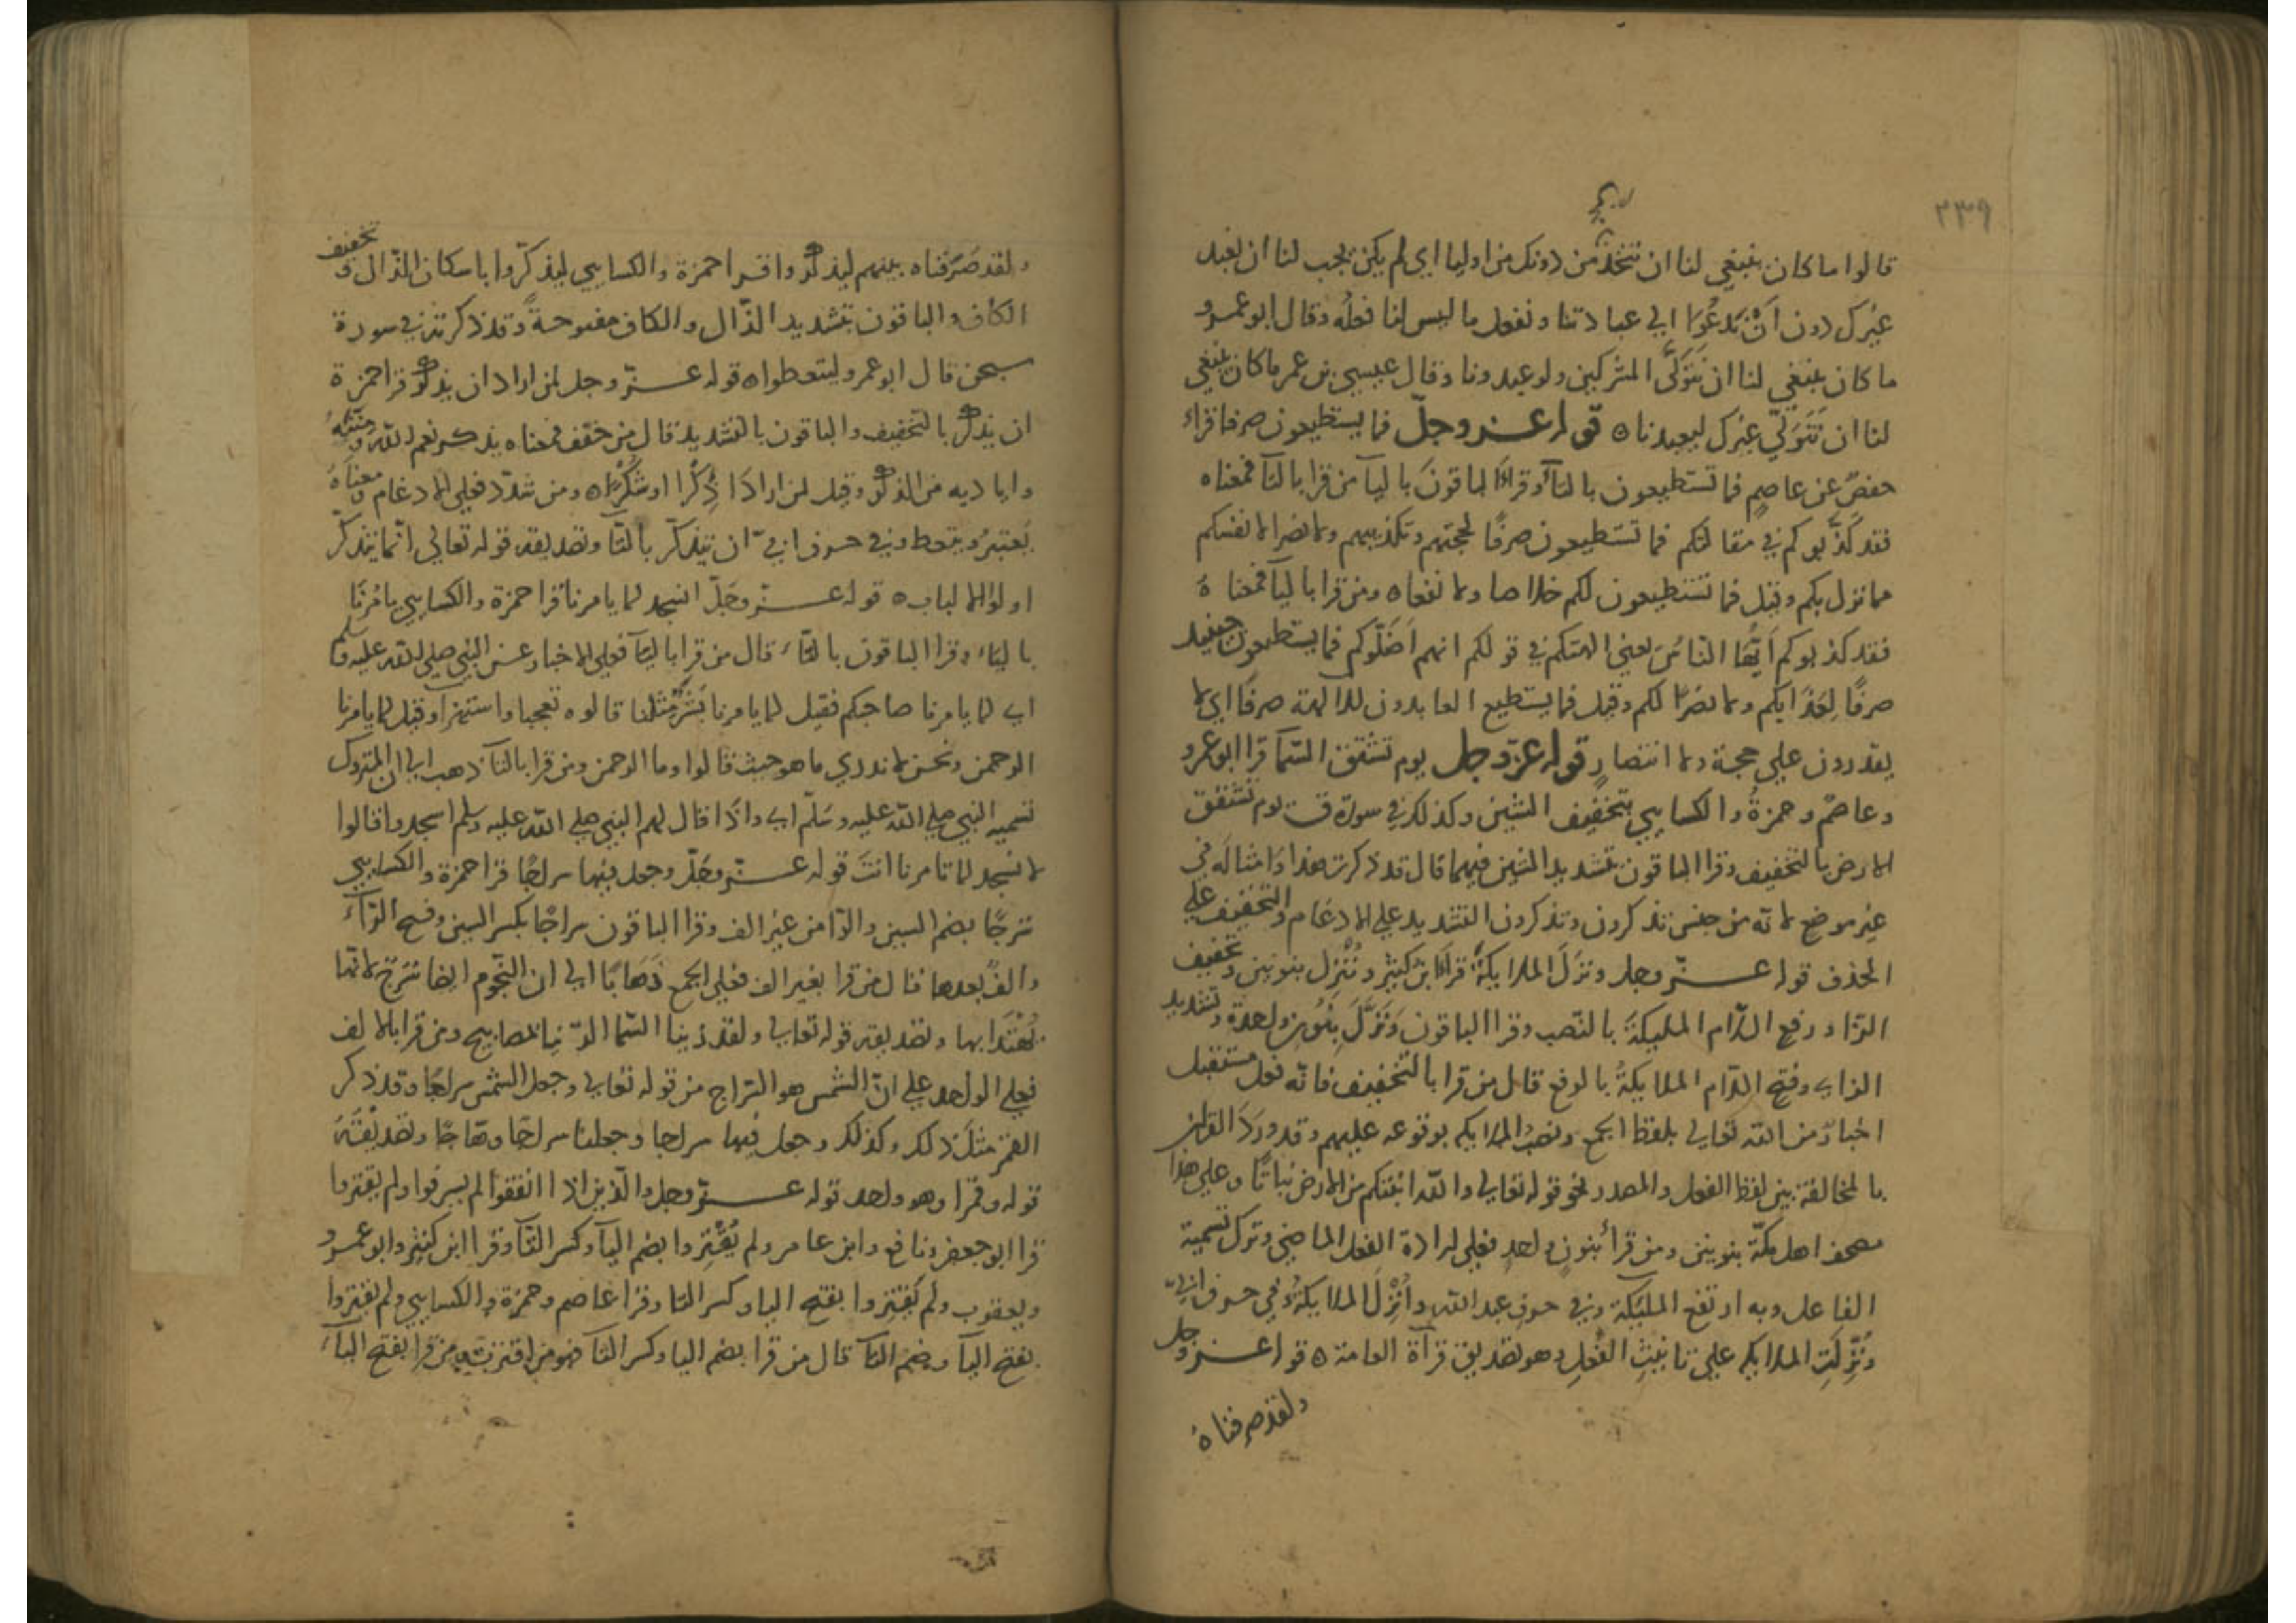 ٢٣٩
قالوا ما كان ينبغي لنا ان نتخذ من دونك من اوليا اي لم يكن يجب لنا ان نعبد
غيرك دون ان ندعوا الي عبادتنا ونفعل ما ليس لنا فعله وقال ابو عمرو
ما كان ينبغي لنا ان نتولى المشركين ولو عبدونا وقال عيسي بن عمر ما كان ينبغي
لنا ان نتولي غيرك ليعبدنا ه قوله عز وجل فما يستطيعون صرفا قراء
حفص عن عاصم فما تستطيعون بالتاء وقرا الباقون باليآ من قرا بالتآ فمعناه
فقد كذبوكم في مقالتكم فما تستطيعون صرفا لحجتهم وتكذيبهم ولا نصرا لانفسكم
مما نزل بكم وقيل فما تستطيعون لكم خلاصا ولا نفعا ه ومن قرا باليآ فمعناه
فقد كذبوكم ايها الناس يعني الهتكم في قولكم انهم اضلوكم فما يستطيعون حينيد
صرفا لعذابكم ولا نصرا لكم وقيل فما يستطيع العابدون للالهة صرفا اي لا
يقدرون علي حجة ولا انتصار قوله عز وجل يوم تشقق السمآ قرا ابو عمرو
وعاصم وحمزة والكسايي بتخفيف الشين وكذلك في سورة ق يوم تشقق
الارض بالتخفيف وقرا الباقون بتشديد الشين فيهما قال قد ذكرت هذا وامثاله في
غير موضع لانه من جنس تذكرون وتذكرون التشديد علي الادغام والتخفيف علي
الحذف قوله عز وجل ونزل الملايكة قرا ابن كثير وننزل بنونين وتخفيف
الزا ورفع اللام المليكة بالنصب وقرا الباقون ونزل بنون واحدة وتشديد
الزاي وفتح اللام الملايكة بالرفع قال من قرا بالتخفيف فانه فعل مستقبل
اخبار من الله تعالي بلفظ الجمع ونصب الملايكه بوقوعه عليهم وقد ورد القران
بالمخالفة بين لفظ الفعل والمصدر نحو قوله تعالي والله انبتكم من الارض نباتا وعلي هذا
مصحف اهل مكة بنونين ومن قرأ بنون واحد فعلي ارادة الفعل الماضي وترك تسمية
الفاعل وبه ارتفع المليكة وفي حرف عبد الله وانزل الملايكة وفي حرف ابي
ونزلت الملايكه علي تانيث الفعل وهو تصديق قرآة العامة ه قوله عز وجل
ولقد صرفناه
ولقد صرفناه بينهم ليذكروا قرا حمزة والكسايي ليذكروا باسكان الذال وتخفيف
الكاف والباقون بتشديد الذال والكاف مفتوحة وقد ذكرته في سورة
سبحن قال ابو عمرو ليتعظوا ه قوله عز وجل لمن اراد ان يذكر قرا حمزة
ان يذكر بالتخفيف والباقون بالتشديد قال من خفف فمعناه يذكر نعم الله ومننه
واياديه من الذكر وقيل لمن اراد اذكرا او شكرا ه ومن شدد فعلي الادغام ومعناه
يعتبر ويتعظ وفي حرف ابي ان يتذكر بالتا وتصديقه قوله تعالي انما يتذكر
اولوا الالباب ه قوله عز وجل انسجد لما يامرنا قرا حمزة والكسايي يامرنا
بالياء وقرا الباقون بالتاء قال من قرا باليآ فعلي الاخبار عن النبي صلي الله عليه وسلم
اي لما يامرنا صاحبكم فقيل لما يامرنا بشر مثلنا قالوه تعجبا واستهزا وقيل لما يامرنا
الرحمن ونحن لا ندري ما هو حيث قالوا وما الرحمن ومن قرا بالتآ ذهب الي ان المتروك
تسميه النبي صلي الله عليه وسلم اي واذا قال لهم النبي صلي الله عليه وسلم اسجدوا قالوا
لا نسجد لما تامرنا انت قوله عز وجل وجعل فيها سراجا قرا حمزة والكسايي
سرجا بضم السين والرا من غير الف وقرا الباقون سراجا بكسر السين وفتح الراء
والف بعدها قال من قرا بغير الف فعلي الجمع ذهابا الي ان النجوم ايضا سرج لانها
يهتدا بها وتصديقه قوله تعالي ولقد زينا السما الدنيا بمصابيح ومن قرا بالالف
فعلي الواحد علي ان الشمس هو السراج من قوله تعالي وجعل الشمس سراجا وقد ذكر
القمر مثل ذلك وكذلك وجعل فيها سراجا وجعلنا سراجا وهاجا وتصديقه
قوله وقمرا وهو واحد قوله عز وجل والذين اذا انفقوا لم يسرفوا ولم يقتروا
قرا ابو جعفر ونافع وابن عامر ولم يقتروا بضم اليآ وكسر التآ وقرا ابن كثير وابو عمرو
ويعقوب ولم يقتروا بفتح اليا وكسر التا وقرا عاصم وحمزة والكسايي ولم يقتروا
بفتح اليآ وضم التآ قال من قرا بضم اليا وكسر التآ فهو من اقتر يقتر ومن قرا بفتح الياء